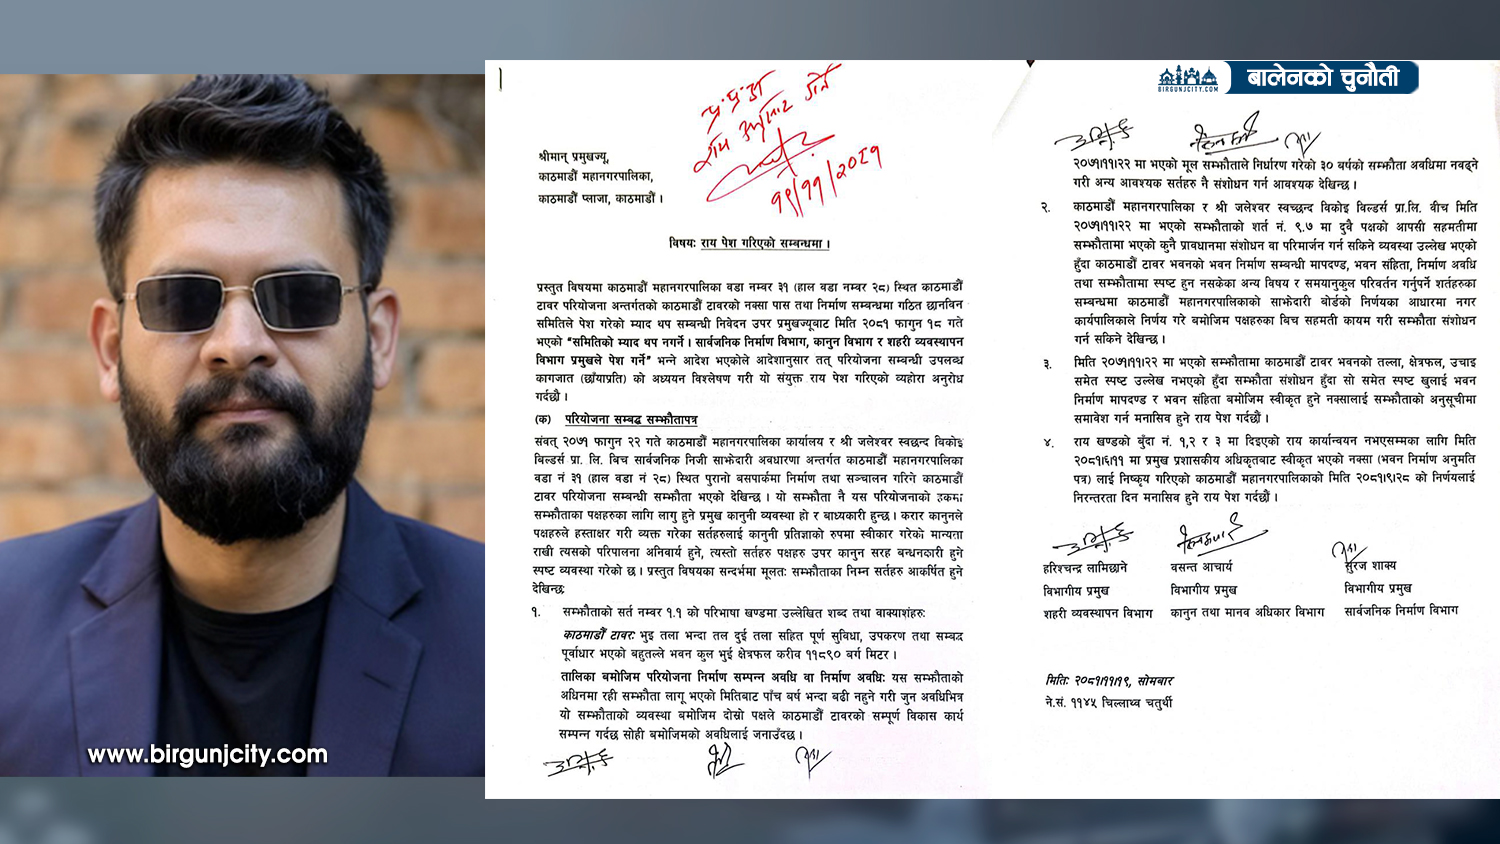 BIRGUNJCITY.COM
बालेनको चुनौती
www.birgunjcity.com
राय अनुसार गर्ने
१९/११/२०८१
श्रीमान् प्रमुखज्यू,
काठमाडौं महानगरपालिका,
काठमाडौं प्लाजा, काठमाडौं ।
विषय: राय पेश गरिएको सम्बन्धमा ।
प्रस्तुत विषयमा काठमाडौं महानगरपालिका वडा नम्बर ३१ (हाल वडा नम्बर २८) स्थित काठमाडौं
टावर परियोजना अन्तर्गतको काठमाडौं टावरको नक्सा पास तथा निर्माण सम्बन्धमा गठित छानविन
समितिले पेश गरेको म्याद थप सम्बन्धी निवेदन उपर प्रमुखज्यूबाट मिति २०८१ फागुन १८ गते
भएको "समितिको म्याद थप नगर्ने। सार्वजनिक निर्माण विभाग, कानुन विभाग र शहरी व्यवस्थापन
विभाग प्रमुखले पेश गर्ने" भन्ने आदेश भएकोले आदेशानुसार तत् परियोजना सम्बन्धी उपलब्ध
कागजात (छाँयाप्रति) को अध्ययन विश्लेषण गरी यो संयुक्त राय पेश गरिएको व्यहोरा अनुरोध
गर्दछौं ।
(क) परियोजना सम्बद्ध सम्झौतापत्र
संवत् २०७१ फागुन २२ गते काठमाडौं महानगरपालिका कार्यालय र श्री जलेश्वर स्वछन्द विकोइ
बिल्डर्स प्रा. लि. बिच सार्वजनिक निजी साझेदारी अवधारणा अन्तर्गत काठमाडौं महानगरपालिका
वडा नं ३१ (हाल वडा नं २८) स्थित पुरानो बसपार्कमा निर्माण तथा सञ्चालन गरिने काठमाडौं
टावर परियोजना सम्बन्धी सम्झौता भएको देखिन्छ । यो सम्झौता नै यस परियोजनाको हकमा
सम्झौताका पक्षहरुका लागि लागु हुने प्रमुख कानुनी व्यवस्था हो र बाध्यकारी हुन्छ । करार कानुनले
पक्षहरुले हस्ताक्षर गरी व्यक्त गरेका सर्तहरुलाई कानुनी प्रतिज्ञाको रुपमा स्वीकार गरेको मान्यता
राखी त्यसको परिपालना अनिवार्य हुने, त्यस्तो सर्तहरु पक्षहरु उपर कानुन सरह बन्धनकारी हुने
स्पष्ट व्यवस्था गरेको छ । प्रस्तुत विषयका सन्दर्भमा मूलत: सम्झौताका निम्न सर्तहरु आकर्षित हुने
देखिन्छ:
१. सम्झौताको सर्त नम्बर १.१ को परिभाषा खण्डमा उल्लेखित शब्द तथा वाक्याशंहरु:
काठमाडौं टावर: भुइ तला भन्दा तल दुई तला सहित पूर्ण सुविधा, उपकरण तथा सम्बद्ध
पूर्वाधार भएको बहुतल्ले भवन कुल भुई क्षेत्रफल करीव ११८९० बर्ग मिटर ।
तालिका बमोजिम परियोजना निर्माण सम्पन्न अवधि वा निर्माण अवधि: यस सम्झौताको
अधिनमा रही सम्झौता लागू भएको मितिबाट पाँच बर्ष भन्दा बढी नहुने गरी जुन अवधिभित्र
यो सम्झौताको व्यवस्था बमोजिम दोस्रो पक्षले काठमाडौं टावरको सम्पूर्ण विकास कार्य
सम्पन्न गर्दछ सोही बमोजिमको अवधिलाई जनाउँदछ ।
२०७१।११।२२ मा भएको मूल सम्झौताले निर्धारण गरेको ३० बर्षको सम्झौता अवधिमा नबढ्ने
गरी अन्य आवश्यक सर्तहरु नै संशोधन गर्न आवश्यक देखिन्छ ।
२. काठमाडौं महानगरपालिका र श्री जलेश्वर स्वच्छन्द विकोइ बिल्डर्स प्रा.लि. वीच मिति
२०७१।११।२२ मा भएको सम्झौताको शर्त नं. ९.७ मा दुवै पक्षको आपसी सहमतीमा
सम्झौतामा भएको कुनै प्रावधानमा संशोधन वा परिमार्जन गर्न सकिने व्यवस्था उल्लेख भएको
हुँदा काठमाडौं टावर भवनको भवन निर्माण सम्बन्धी मापदण्ड, भवन संहिता, निर्माण अवधि
तथा सम्झौतामा स्पष्ट हुन नसकेका अन्य विषय र समयानुकुल परिवर्तन गर्नुपर्ने शर्तहरुका
सम्बन्धमा काठमाडौं महानगरपालिकाको साझेदारी बोर्डको निर्णयका आधारमा नगर
कार्यपालिकाले निर्णय गरे बमोजिम पक्षहरुका बिच सहमती कायम गरी सम्झौता संशोधन
गर्न सकिने देखिन्छ ।
३. मिति २०७१।११।२२ मा भएको सम्झौतामा काठमाडौं टावर भवनको तल्ला, क्षेत्रफल, उचाइ
समेत स्पष्ट उल्लेख नभएको हुँदा सम्झौता संशोधन हुँदा सो समेत स्पष्ट खुलाई भवन
निर्माण मापदण्ड र भवन संहिता बमोजिम स्वीकृत हुने नक्सालाई सम्झौताको अनुसूचीमा
समावेश गर्न मनासिव हुने राय पेश गर्दछौं ।
४. राय खण्डको बुँदा नं. १,२ र ३ मा दिइएको राय कार्यान्वयन नभएसम्मका लागि मिति
२०८१।६।११ मा प्रमुख प्रशासकीय अधिकृतबाट स्वीकृत भएको नक्सा (भवन निर्माण अनुमति
पत्र) लाई निष्कृय गरिएको काठमाडौं महानगरपालिकाको मिति २०८१।९।२८ को निर्णयलाई
निरन्तरता दिन मनासिव हुने राय पेश गर्दछौं ।
हरिश्चन्द्र लामिछाने वसन्त आचार्य सुरज शाक्य
विभागीय प्रमुख विभागीय प्रमुख विभागीय प्रमुख
शहरी व्यवस्थापन विभाग कानुन तथा मानव अधिकार विभाग सार्वजनिक निर्माण विभाग
मिति: २०८१।११।१९, सोमबार
ने.सं. ११४५ चिल्लाथ्व चतुर्थी